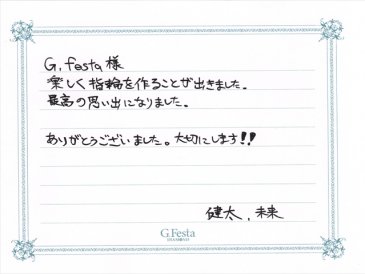 G.festa様
楽しく指輪を作ることが出きました。
最高の思い出になりました。
ありがとうございました。大切にします!!
健太、未来
G.Festa
DIAMOND